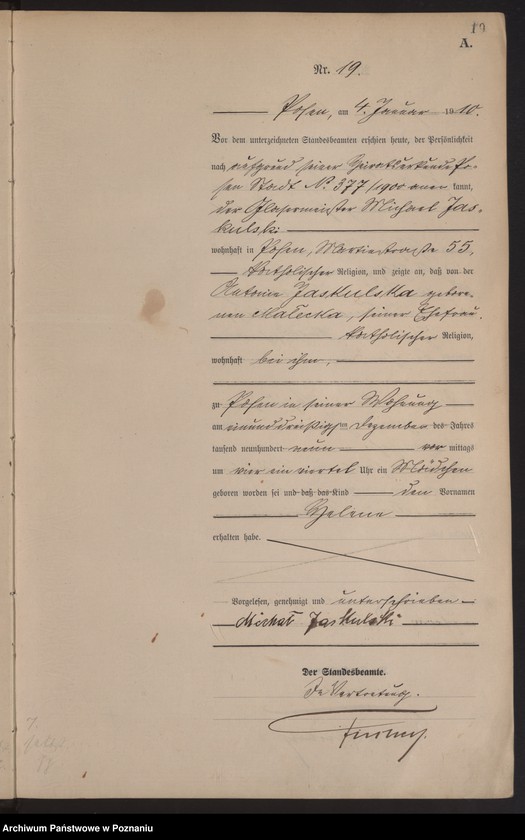 19
A.
Nr. 19.
Posen, am 4. Januar 1910.
Vor dem unterzeichneten Standesbeamten erschien heute, der Persönlichkeit
nach aufgrund seiner Heiratsurkunde Po-
sen Stadt No 377/1900 anerkannt,
der Glasermeister Michael Jas-
kulski
wohnhaft in Posen, Martinstraße 55,
katholischer Religion, und zeigte an, daß von der
Antonie Jaskulska gebore-
nen Małecka, seiner Ehefrau
katholischer Religion,
wohnhaft bei ihm,
zu Posen in seiner Wohnung
am einunddreißigsten Dezember des Jahres
tausend neunhundert neun vormittags
um vier ein viertel Uhr ein Mädchen
geboren worden sei und daß das Kind den Vornamen
Helene
erhalten habe.
Vorgelesen, genehmigt und unterschrieben
Michał Jaskulski
Der Standesbeamte.
In Vertretung.
Archiwum Państwowe w Poznaniu